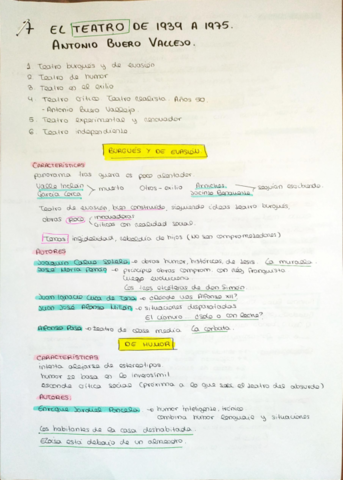 7 EL TEATRO DE 1939 A 1975.
ANTONIO BUERO VALLEJO.
1 Teatro burgués y de evasión
2 Teatro de humor
3 Teatro en el exilio
4 Teatro Crítico Teatro Años 50
- Antonio Buero Vallejo
5 Teatro experimental y renovador
6 Teatro independiente
BURGUÉS Y DE EVASIÓN
CARACTERÍSTICAS
panorama tras guerra es poco alentador
Valle Inclán
García Lorca
muerto Otros - exilio
siguen escribiendo
Jacinto Benavente
Teatro de evasión, bien construido siguiendo ideas teatro burgués,
obras poco innovadoras
crítica con realidad social
Temas infidelidad, rebeldía de hijos (no son comprometedores)
AUTORES
Joaquín Calvo Sotelo → obras humor, históricas, de tesis La muralla
José María Pemán → principio obras comprom con nac, franquista
luego evoluciona
Los tres etcéteras de don Simón
Juan Ignacio Luca de Tena → ¿Dónde vas Alfonso XII?
Juan José Alonso Millán → situaciones disparatadas
El cianuro ¿solo o con leche?
Alfonso Paso → teatro de clase media La corbata
DE HUMOR
CARACTERÍSTICAS
intenta alejarse de estereotipos
humor se basa en lo inverosímil
esconde crítica social (próxima a lo que será el teatro del absurdo)
AUTORES:
Enrique Jardiel Poncela → humor inteligente, irónico
combina humor lenguaje y situaciones
Los habitantes de la casa deshabitada
Eloísa está debajo de un almendro